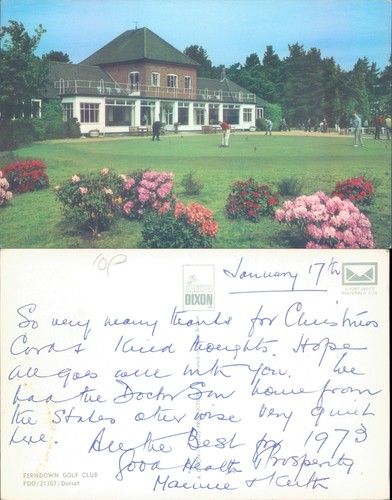 10P
DIXON
January 17th
So very many thanks for Christmas
Card & kind thoughts. Hope
all goes well with you. I've
had the Doctor Son home from
the States other wise very quiet
here. All the Best for 1973
Good Health & Prosperity.
FERNDOWN GOLF CLUB
FGO/21307/Dorset